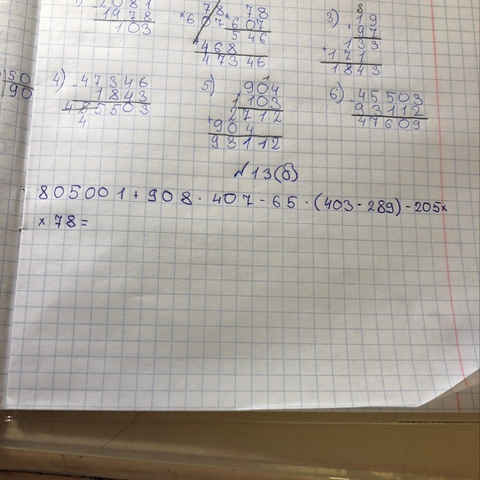 2081
1978
103
78 78
× 607 × 607
546
468
47346
3) 19
× 97
133
171
1843
50
90
4) - 47346
1843
45503
5) 904
103
2712
+ 904
93112
6) 45503
93112
47609
№13(б)
805001 + 908 · 407 - 65 · (403 - 289) - 205×
× 78 =